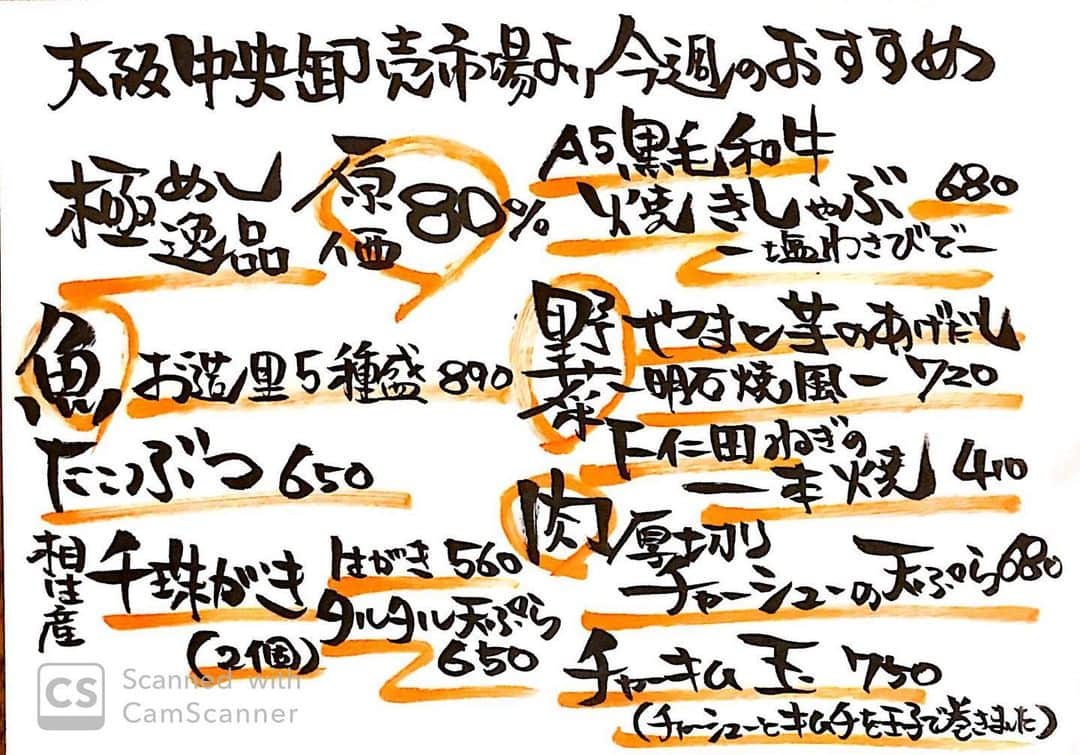 大阪中央卸売市場より今週のおすすめ
極めし逸品 原価80%
A5黒毛和牛
焼きしゃぶ 680
ー塩わさびでー
魚 お造里5種盛 890
たこぶつ 650
相生産 千珠がき (2個)
はがき 560
タルタル天ぷら 650
野菜 やまと芋のあげだし
ー明石焼風ー 720
下仁田ねぎの
一本焼 410
肉 厚切り
チャーシューの天ぷら 680
チャーキム玉 750
(チャーシューとキムチを玉子で巻きました)
CS Scanned with
CamScanner